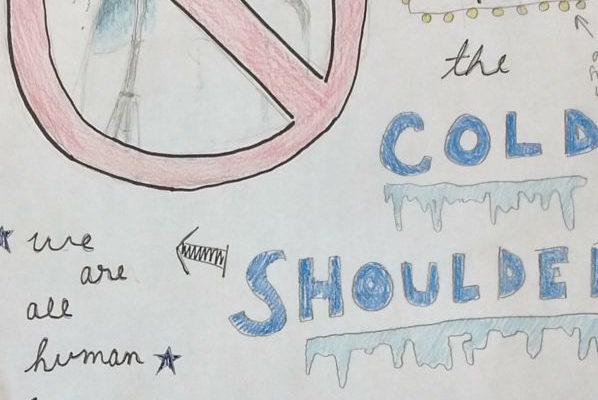 the
COLD
SHOULDE
we
are
all
human